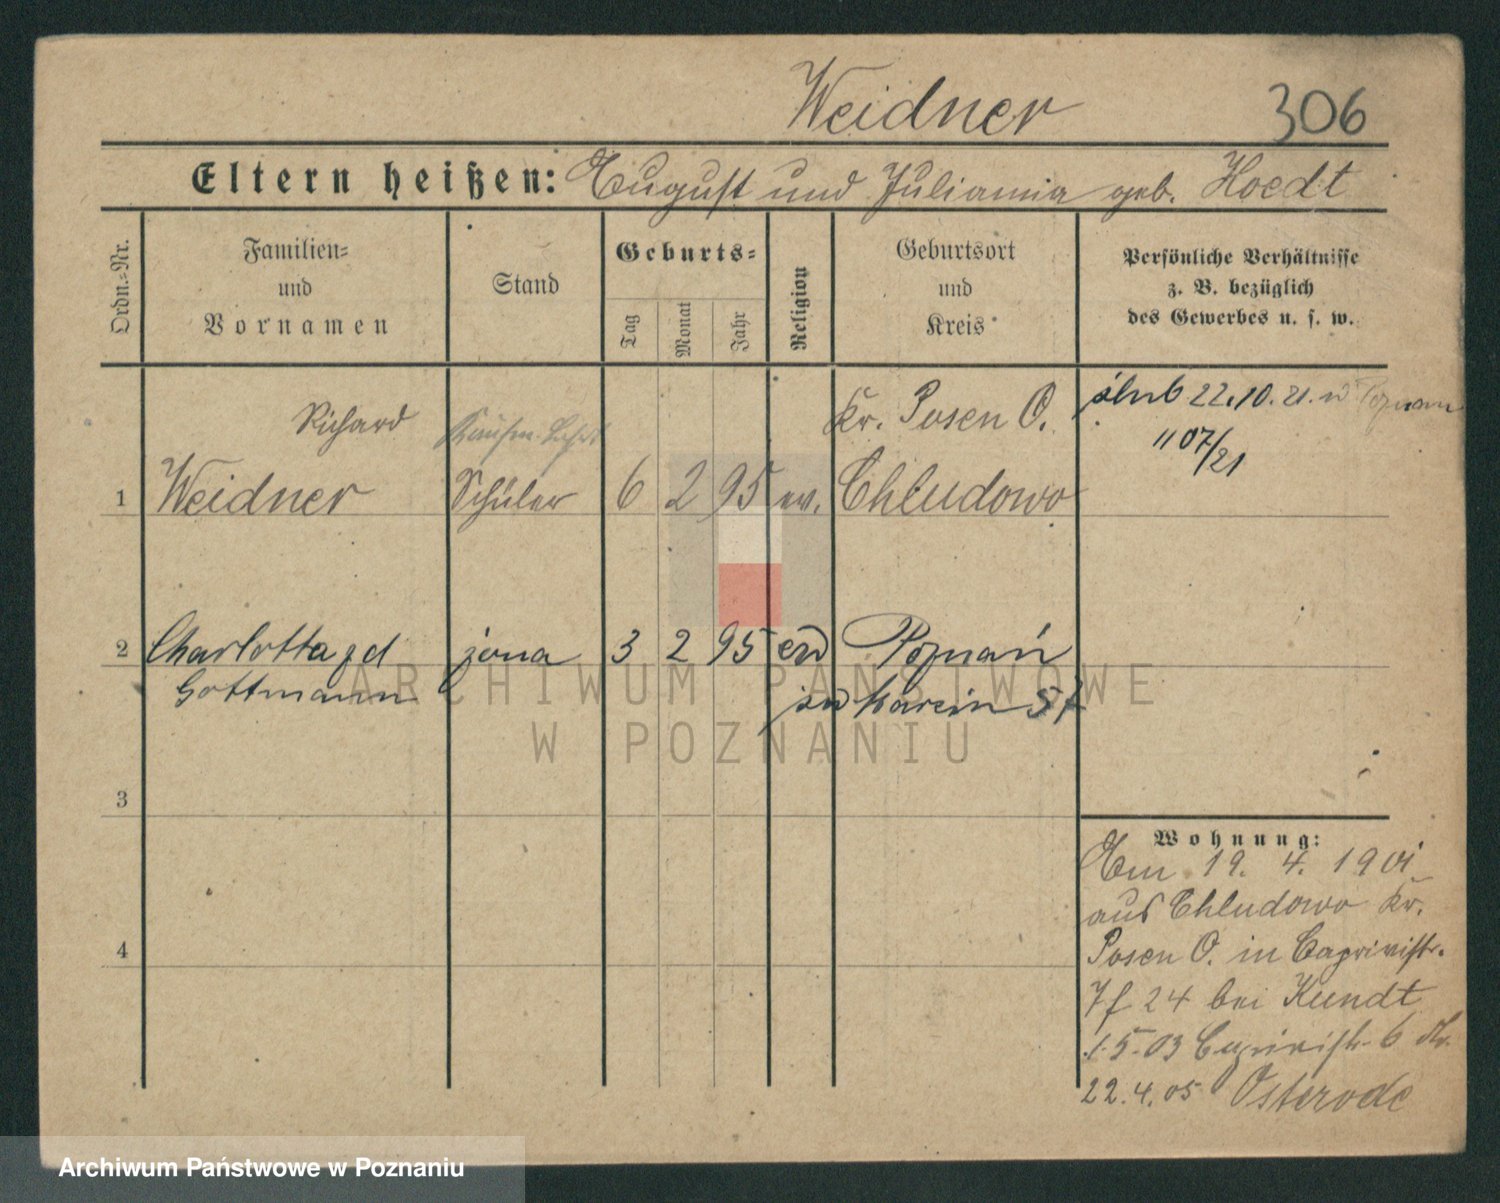 Weidner 306
Eltern heißen: August und Julianna geb. Hoedt
Ordn.=Nr.
Familien=
und
Vornamen
Stand
Geburts=
Tag
Monat
Jahr
Religion
Geburtsort
und
Kreis
Persönliche Verhältnisse
z. B. bezüglich
des Gewerbes u. s. w.
Richard
Kr. Posen O.
ślub 22.10.21. w Poznan
1107/21
1 Weidner Schüler 6 2 95 ev. Chludowo
2 Charlotta zd żona 3 2 95 ew Poznań
Gottmann
św Marcin 57
3
4
Wohnung:
Am 19. 4. 1901
aus Chludowo Kr.
Posen O. in Caprivistr.
24 bei Kundt
1.5.03 Caprivistr. 6
22.4.05 Osterode
ARCHIWUM PAŃSTWOWE
W POZNANIU
Archiwum Państwowe w Poznaniu